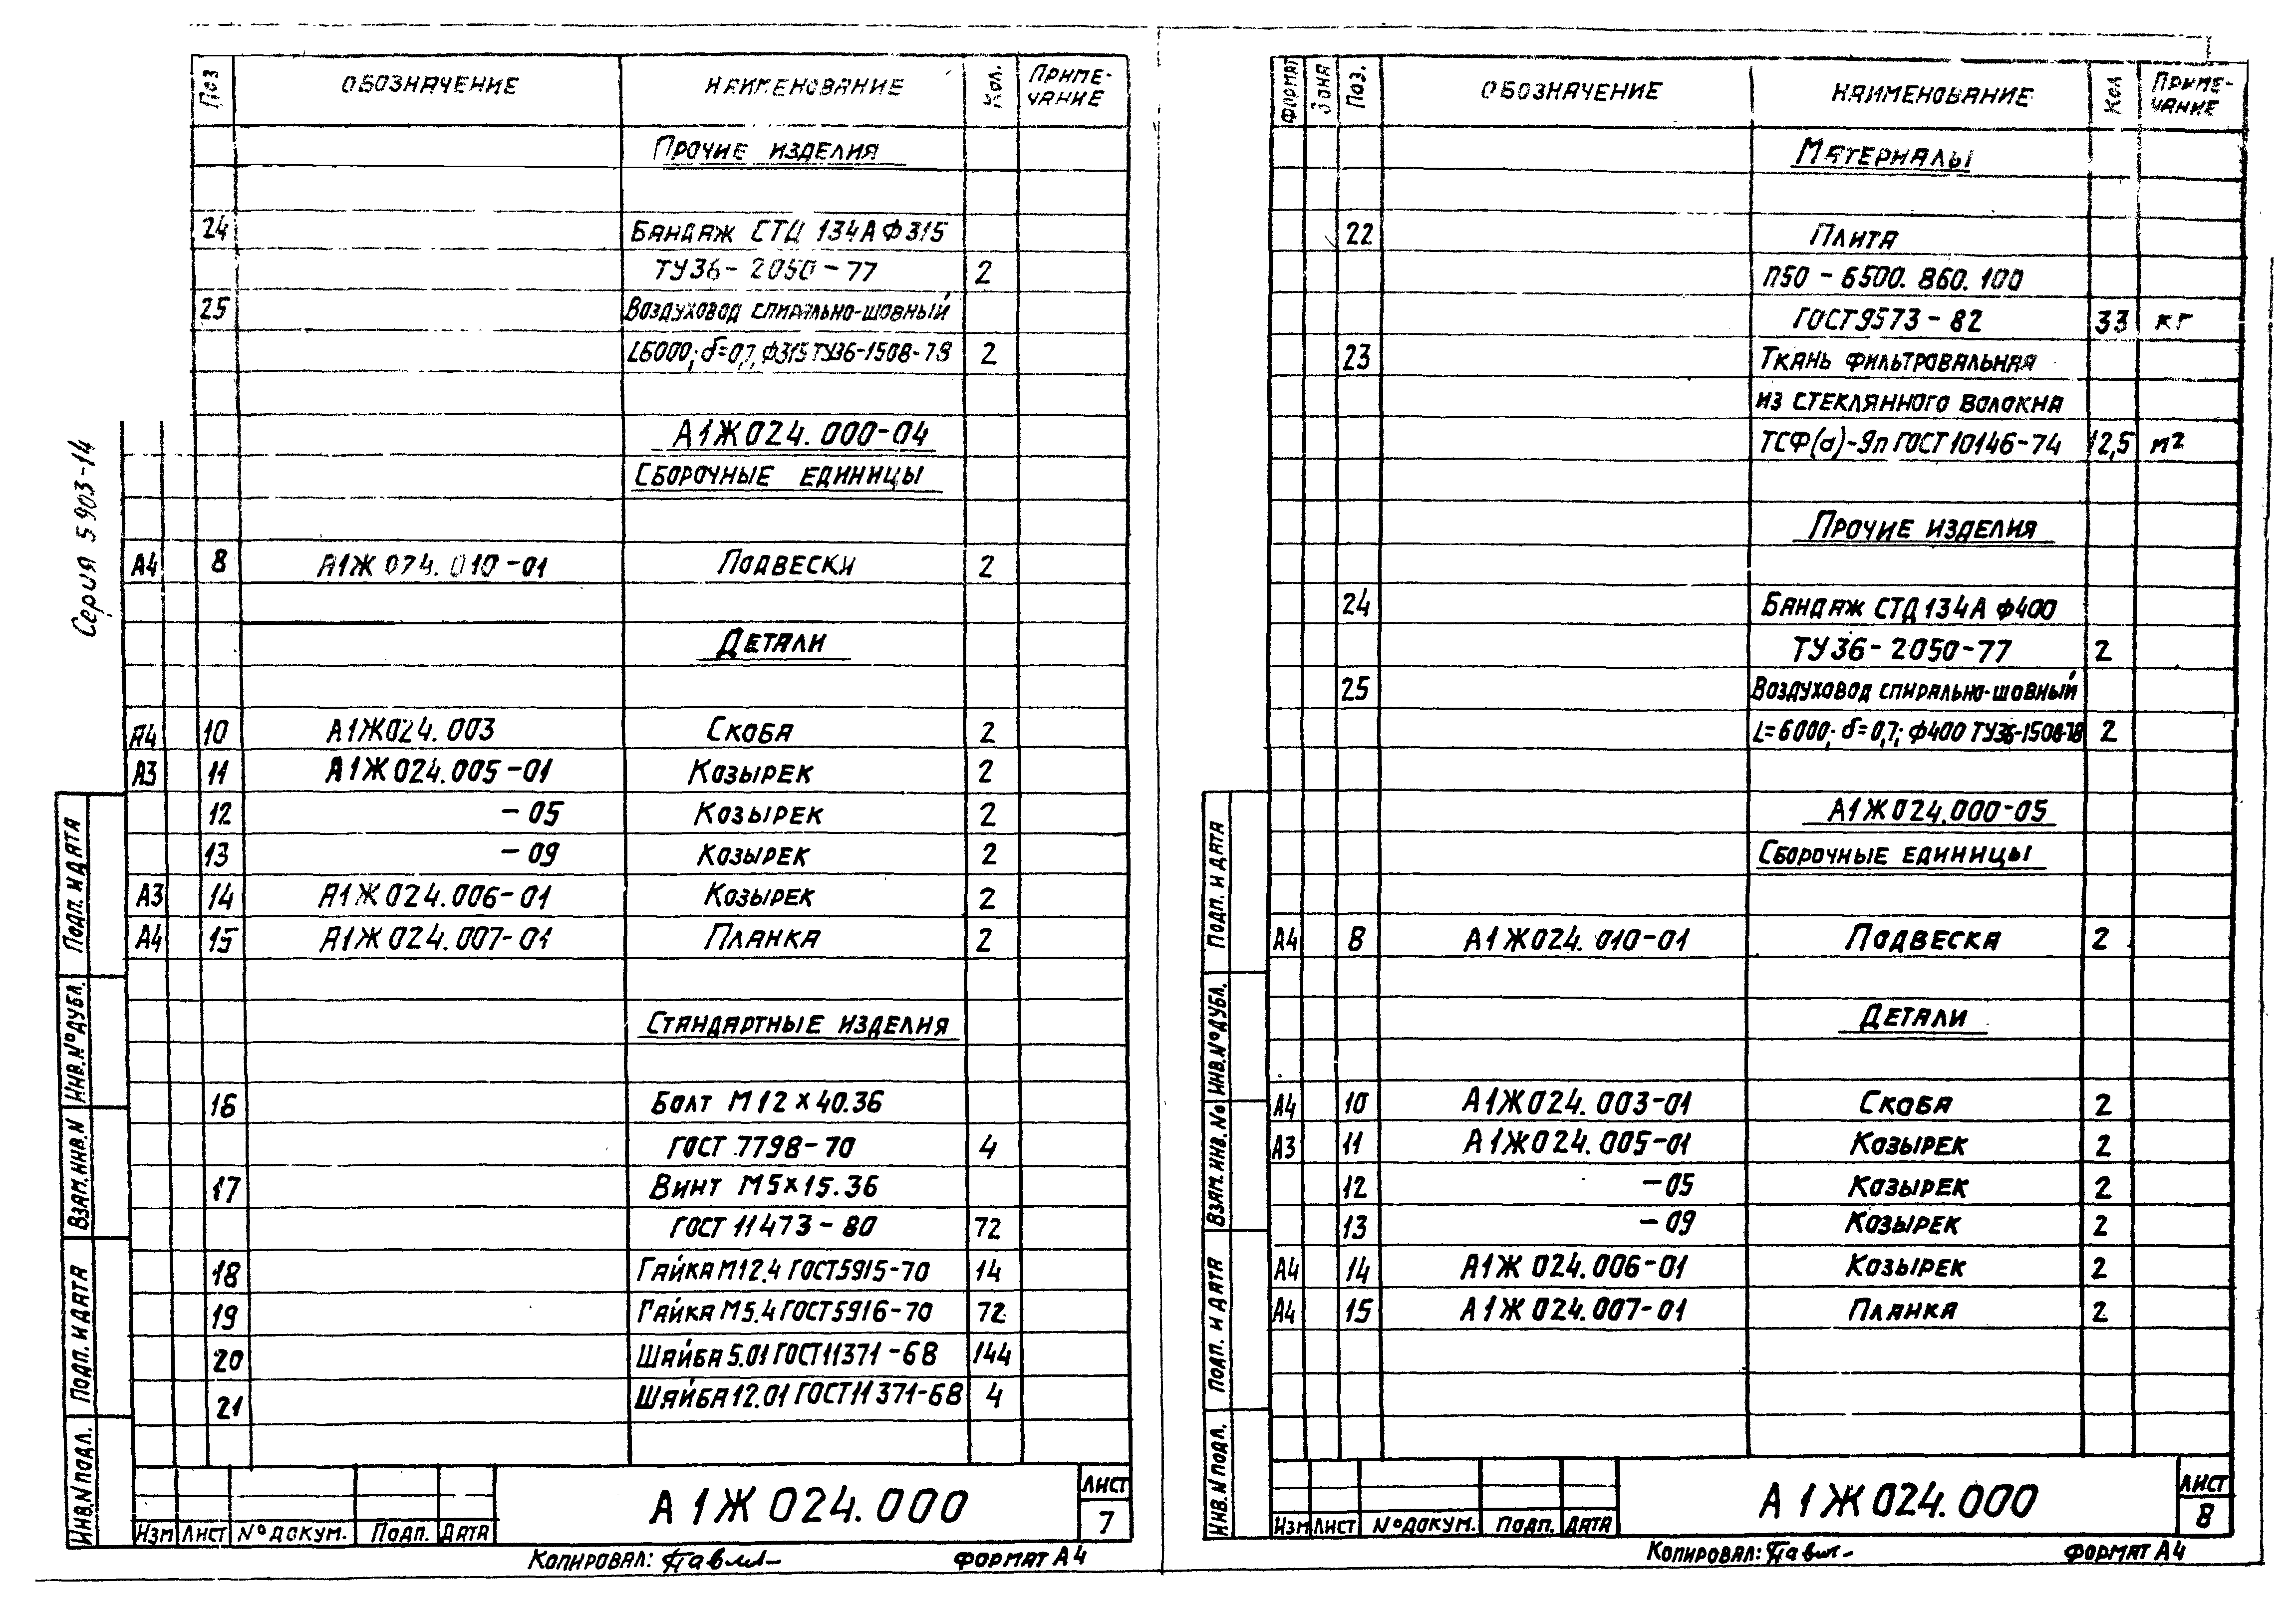 Поз ОБОЗНАЧЕНИЕ НАИМЕНОВАНИЕ Кол. ПРИМЕ-
ЧАНИЕ
ПРОЧИЕ ИЗДЕЛИЯ
24 БАНДАЖ СТД 134А Ф315
ТУ36-2050-77 2
25 ВОЗДУХОВОД СПИРАЛЬНО-ШОВНЫЙ
L6000; δ=0,7; Ф315 ТУ36-1508-78 2
А1Ж024.000-04
СБОРОЧНЫЕ ЕДИНИЦЫ
А4 8 А1Ж 024.010-01 ПОДВЕСКИ 2
ДЕТАЛИ
А4 10 А1Ж024.003 СКОБА 2
А3 11 А1Ж024.005-01 КОЗЫРЕК 2
12 -05 КОЗЫРЕК 2
13 -09 КОЗЫРЕК 2
А3 14 А1Ж024.006-01 КОЗЫРЕК 2
А4 15 А1Ж024.007-01 ПЛАНКА 2
СТАНДАРТНЫЕ ИЗДЕЛИЯ
16 БОЛТ М12×40.36
ГОСТ 7798-70 4
17 ВИНТ М5×15.36
ГОСТ 11473-80 72
18 ГАЙКА М12.4 ГОСТ5915-70 14
19 ГАЙКА М5.4 ГОСТ5916-70 72
20 ШАЙБА 5.01 ГОСТ11371-68 144
21 ШАЙБА 12.01 ГОСТ11371-68 4
Серия 5903-14
ПОДП. И ДАТА
ИНВ.№ДУБЛ.
ВЗАМ.ИНВ.N
ПОДП. И ДАТА
ИНВ.N ПОДЛ.
ИЗМ ЛИСТ №ДОКУМ. ПОДП. ДАТА
А1Ж024.000
ЛИСТ
7
КОПИРОВАЛ: ФОРМАТ А4
ФОРМАТ ЗОНА Поз. ОБОЗНАЧЕНИЕ НАИМЕНОВАНИЕ Кол ПРИМЕ-
ЧАНИЕ
МАТЕРИАЛЫ
22 ПЛИТА
П50-6500.860.100
ГОСТ9573-82 33 кг
23 ТКАНЬ ФИЛЬТРОВАЛЬНАЯ
ИЗ СТЕКЛЯННОГО ВОЛОКНА
ТСФ(а)-9п ГОСТ10146-74 12,5 м2
ПРОЧИЕ ИЗДЕЛИЯ
24 БАНДАЖ СТД134А Ф400
ТУ36-2050-77 2
25 ВОЗДУХОВОД СПИРАЛЬНО-ШОВНЫЙ
L=6000; δ=0,7; Ф400 ТУ36-1508-78 2
А1Ж024.000-05
СБОРОЧНЫЕ ЕДИНИЦЫ
А4 8 А1Ж024.010-01 ПОДВЕСКА 2
ДЕТАЛИ
А4 10 А1Ж024.003-01 СКОБА 2
А3 11 А1Ж024.005-01 КОЗЫРЕК 2
12 -05 КОЗЫРЕК 2
13 -09 КОЗЫРЕК 2
А4 14 А1Ж 024.006-01 КОЗЫРЕК 2
А4 15 А1Ж 024.007-01 ПЛАНКА 2
ПОДП. И ДАТА
ИНВ.№ДУБЛ.
ВЗАМ.ИНВ.№
ПОДП. И ДАТА
ИНВ.N ПОДЛ.
ИЗМ ЛИСТ №ДОКУМ. ПОДП. ДАТА
А1Ж024.000
ЛИСТ
8
КОПИРОВАЛ: ФОРМАТ А4